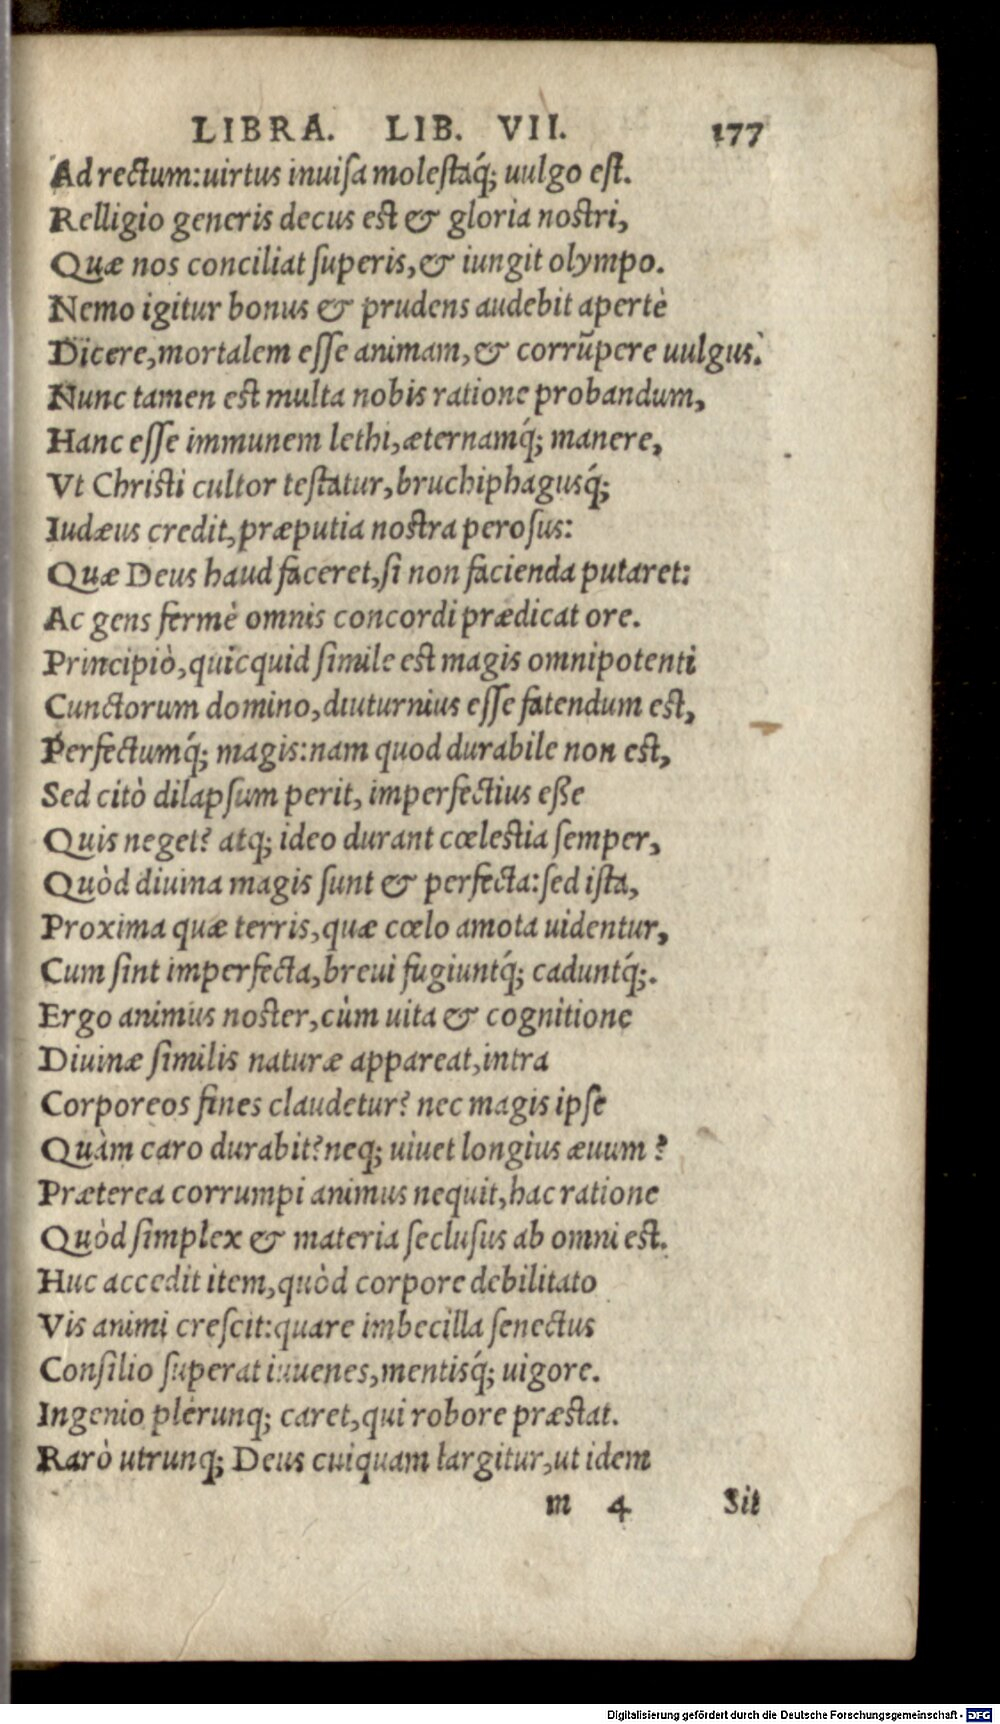 LIBRA. LIB. VII. 177
Ad rectum:uirtus inuisa molestaq́; uulgo est.
Relligio generis decus est & gloria nostri,
Quæ nos conciliat superis,& iungit olympo.
Nemo igitur bonus & prudens audebit apertè
Dicere,mortalem esse animam,& corrũpere uulgus.
Nunc tamen est multa nobis ratione probandum,
Hanc esse immunem lethi,æternamq́; manere,
Vt Christi cultor testatur,bruchiphagusq́;
Iudæus credit,præputia nostra perosus:
Quæ Deus haud faceret,si non facienda putaret:
Ac gens fermè omnis concordi prædicat ore.
Principiò,quicquid simile est magis omnipotenti
Cunctorum domino,diuturnius esse fatendum est,
Perfectumq́; magis:nam quod durabile non est,
Sed citò dilapsum perit, imperfectius eße
Quis neget? atq; ideo durant cœlestia semper,
Quòd diuina magis sunt & perfecta:sed ista,
Proxima quæ terris,quæ cœlo amota uidentur,
Cum sint imperfecta,breui fugiuntq́; caduntq́;.
Ergo animus noster,cùm uita & cognitione
Diuinæ similis naturæ appareat,intra
Corporeos fines claudetur? nec magis ipse
Quàm caro durabit?neq; uiuet longius æuum?
Præterea corrumpi animus nequit,hac ratione
Quòd simplex & materia seclusus ab omni est.
Huc accedit item,quòd corpore debilitato
Vis animi crescit:quare imbecilla senectus
Consilio superat iuuenes,mentisq́; uigore.
Ingenio plerunq; caret,qui robore præstat.
Rarò utrunq; Deus cuiquam largitur,ut idem
m 4 Sit
Digitalisierung gefördert durch die Deutsche Forschungsgemeinschaft - DFG